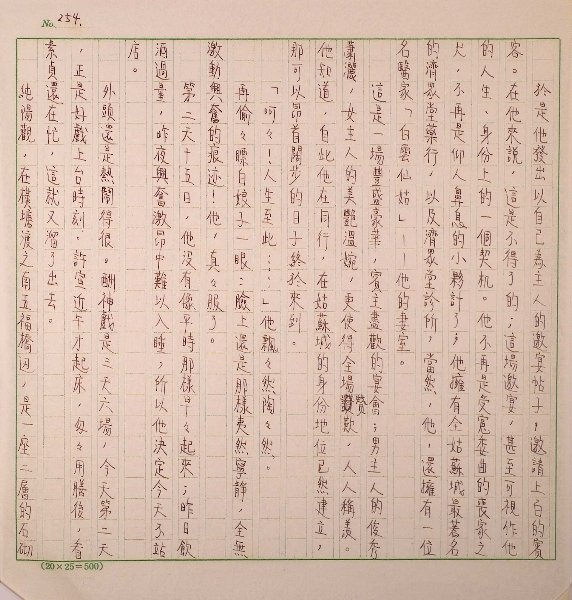 No. 254.
於是他發出以自己為主人的邀宴帖子,邀請上白的賓
客。在他來說,這是不得了的;這場邀宴,甚至可視作他
的人生、身份上的一個契机。他不再是受冤委曲的喪家之
犬,不再是仰人鼻息的小夥計了;他擁有全姑蘇城最著名
的濟眾堂藥行,以及濟眾堂診所,當然,他,還擁有一位
名醫家「白雲仙姑」——他的妻室。
這是一場豐盛豪華,賓主盡歡的宴會;男主人的俊秀
瀟灑,女主人的美艷溫婉,更使得全場贊歎,人人稱羨。
他知道,自此他在同行,在姑蘇城的身份地位已然建立,
那可以昂首闊步的日子終於來到。
「呵々!人生至此⋯⋯」他飄々然陶々然。
再偷々瞟白娘子一眼:臉上還是那樣夷然寧靜,全無
激動興奮的痕迹!他,真々服了。
第二天十五日,他沒有像平時那樣早々起來;昨日飲
酒過量,昨夜興奮激昂中難以入睡;所以他決定今天不站
店。
外頭還是熱鬧得很。酬神戲是三天六場,今天第二天
,正是好戲上台時刻。許宣近午才起來,匆々用膳後,看
素貞還在忙,這就又溜了出去。
純陽觀,在樸墻渡之南五福橋囚,是一座二層的石砌
(20×25=500)